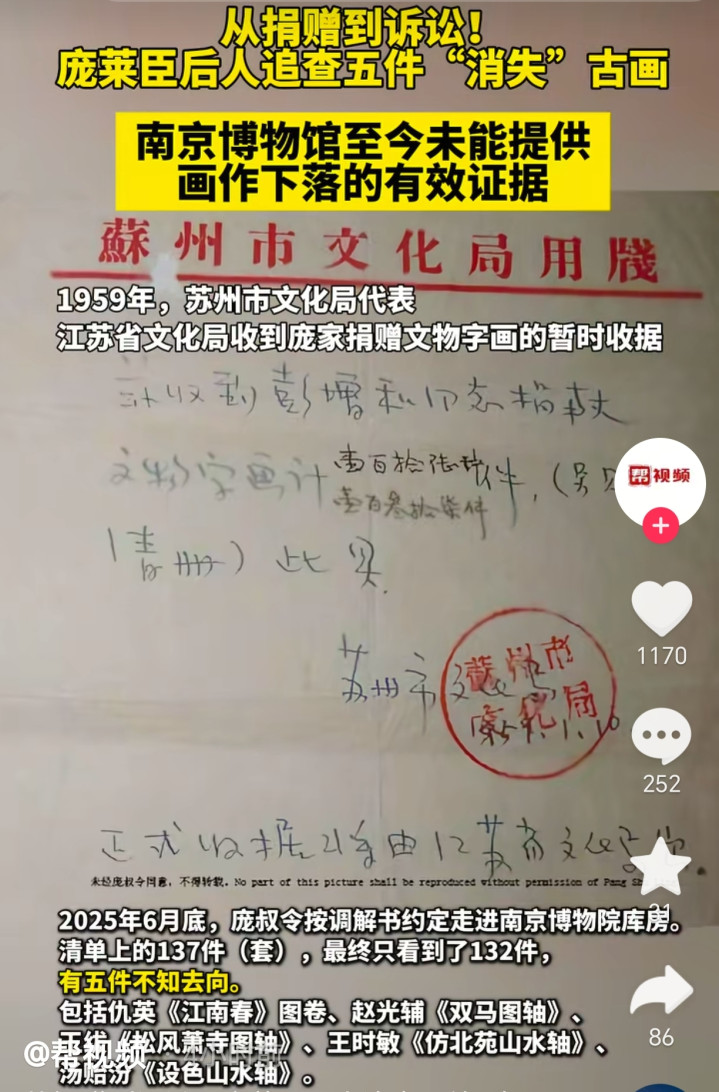 从捐赠到诉讼！
庞莱臣后人追查五件“消失”古画
南京博物馆至今未能提供
画作下落的有效证据
蘇州市文化局用牋
1959年，苏州市文化局代表
江苏省文化局收到庞家捐赠文物字画的暂时收据
收到彭增和同志捐献
文物字画计壹百拾陆种件，（另见
壹百叁拾柒件
清册）此
苏州市文化局
蘇州市
文化局
1959.1.10
正式收据将由江苏省文化局
帮视频
1170
252
31
86
未经庞叔令同意，不得转载。No part of this picture shall be reproduced without permission of Pang Sh
2025年6月底，庞叔令按调解书约定走进南京博物院库房。
清单上的137件（套），最终只看到了132件，
有五件不知去向。
包括仇英《江南春》图卷、赵光辅《双马图轴》、
王绂《松风萧寺图轴》、王时敏《仿北苑山水轴》、
汤贻汾《设色山水轴》。
@帮视频